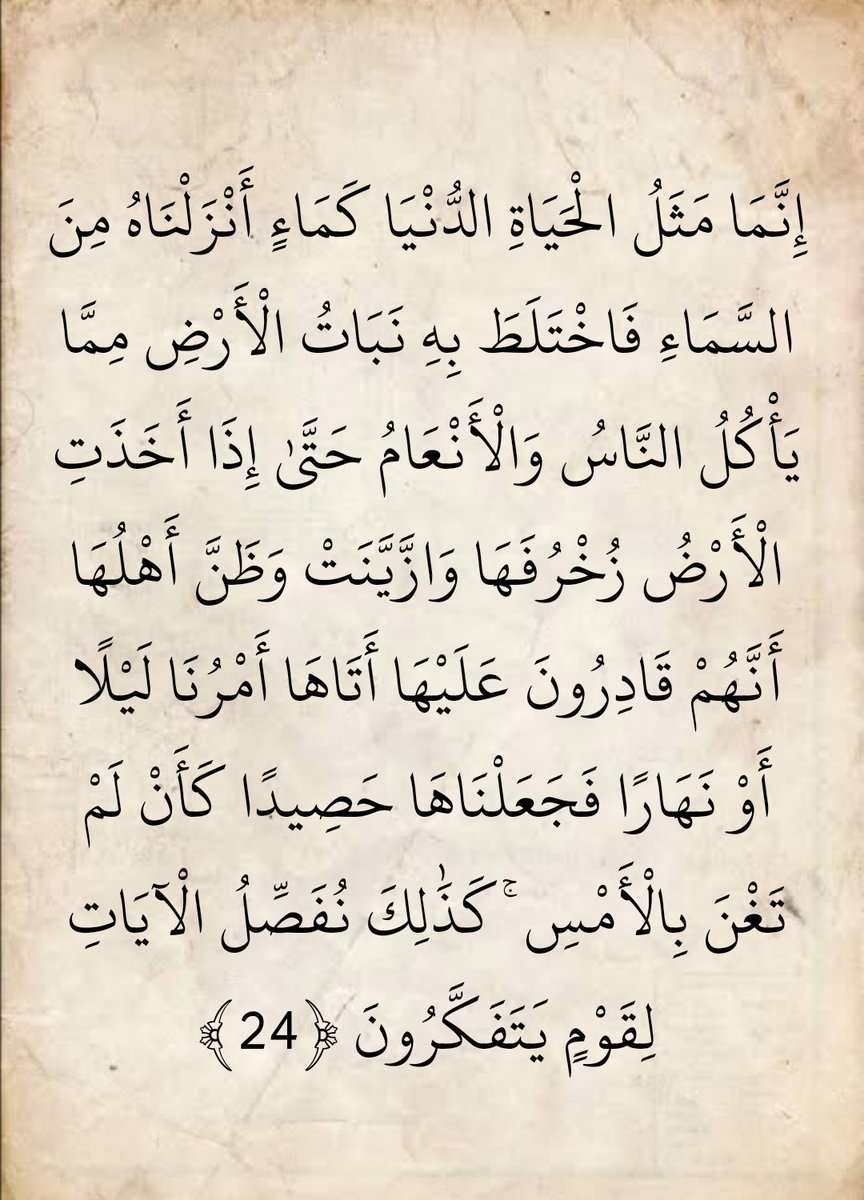 إِنَّمَا مَثَلُ الْحَيَاةِ الدُّنْيَا كَمَاءٍ أَنْزَلْنَاهُ مِنَ
السَّمَاءِ فَاخْتَلَطَ بِهِ نَبَاتُ الْأَرْضِ مِمَّا
يَأْكُلُ النَّاسُ وَالْأَنْعَامُ حَتَّىٰ إِذَا أَخَذَتِ
الْأَرْضُ زُخْرُفَهَا وَازَّيَّنَتْ وَظَنَّ أَهْلُهَا
أَنَّهُمْ قَادِرُونَ عَلَيْهَا أَتَاهَا أَمْرُنَا لَيْلًا
أَوْ نَهَارًا فَجَعَلْنَاهَا حَصِيدًا كَأَنْ لَمْ
تَغْنَ بِالْأَمْسِ ۚ كَذَٰلِكَ نُفَصِّلُ الْآيَاتِ
لِقَوْمٍ يَتَفَكَّرُونَ ﴿24﴾